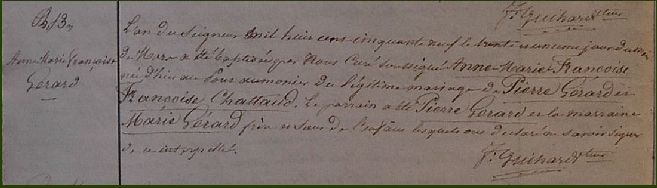 Jh Guihard teur
B. 13.
Anne Marie Françoise
Gérard
L'an du Seigneur mil huit cent cinquante neuf le trente et unieme jour du mois
de Mars a été baptisée par Nous Curé soussigné Anne-Marie-Françoise
née d'hier au bourg du légitime mariage de Pierre Gérard et
Françoise Chattaud. Le parrain a été Pierre Gérard et la marraine
Marie Gérard frère et sœur de l'enfant lesquels ont déclaré ne savoir signer
de ce interpellés.
Jh Guihard teur